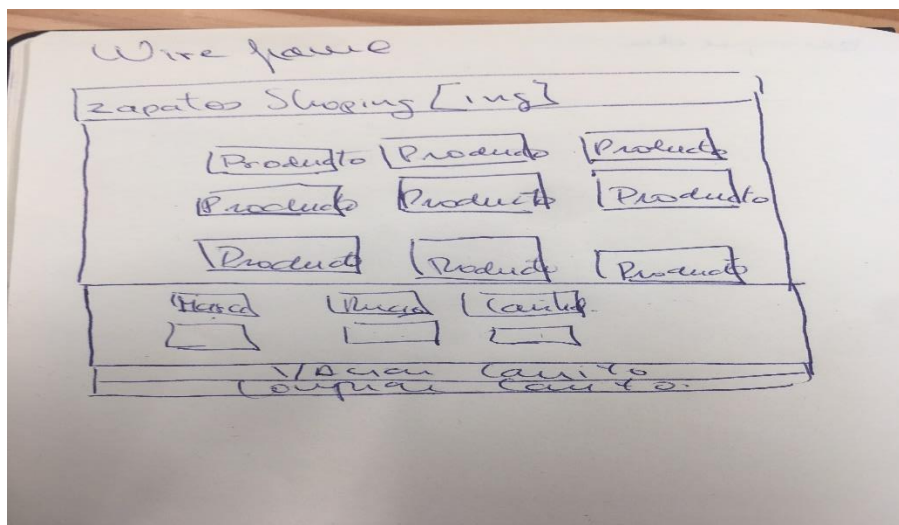 Wire frame
Zapatos Shoping [img]
Producto Producto Producto
Producto Producto Producto
Producto Producto Producto
Marca
Vaciar Carrito
Comprar Carrito.